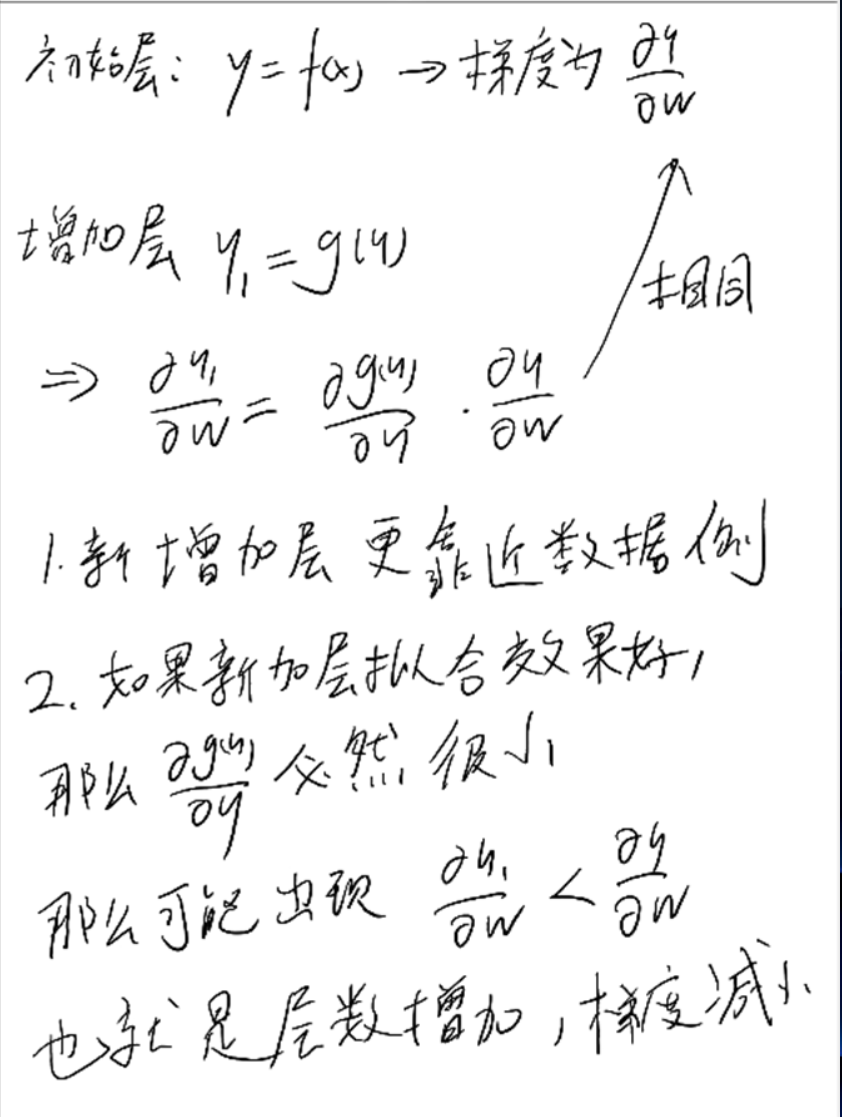 初始层: y = f(x) → 梯度为 ∂y/∂w
增加层 y₁ = g(y)
相同
⇒ ∂y₁/∂w = ∂g(y)/∂y · ∂y/∂w
1. 新增加层更靠近数据侧
2. 如果新加层拟合效果好,
那么 ∂g(y)/∂y 必然很小
那么可能出现 ∂y₁/∂w < ∂y/∂w
也就是层数增加,梯度减小